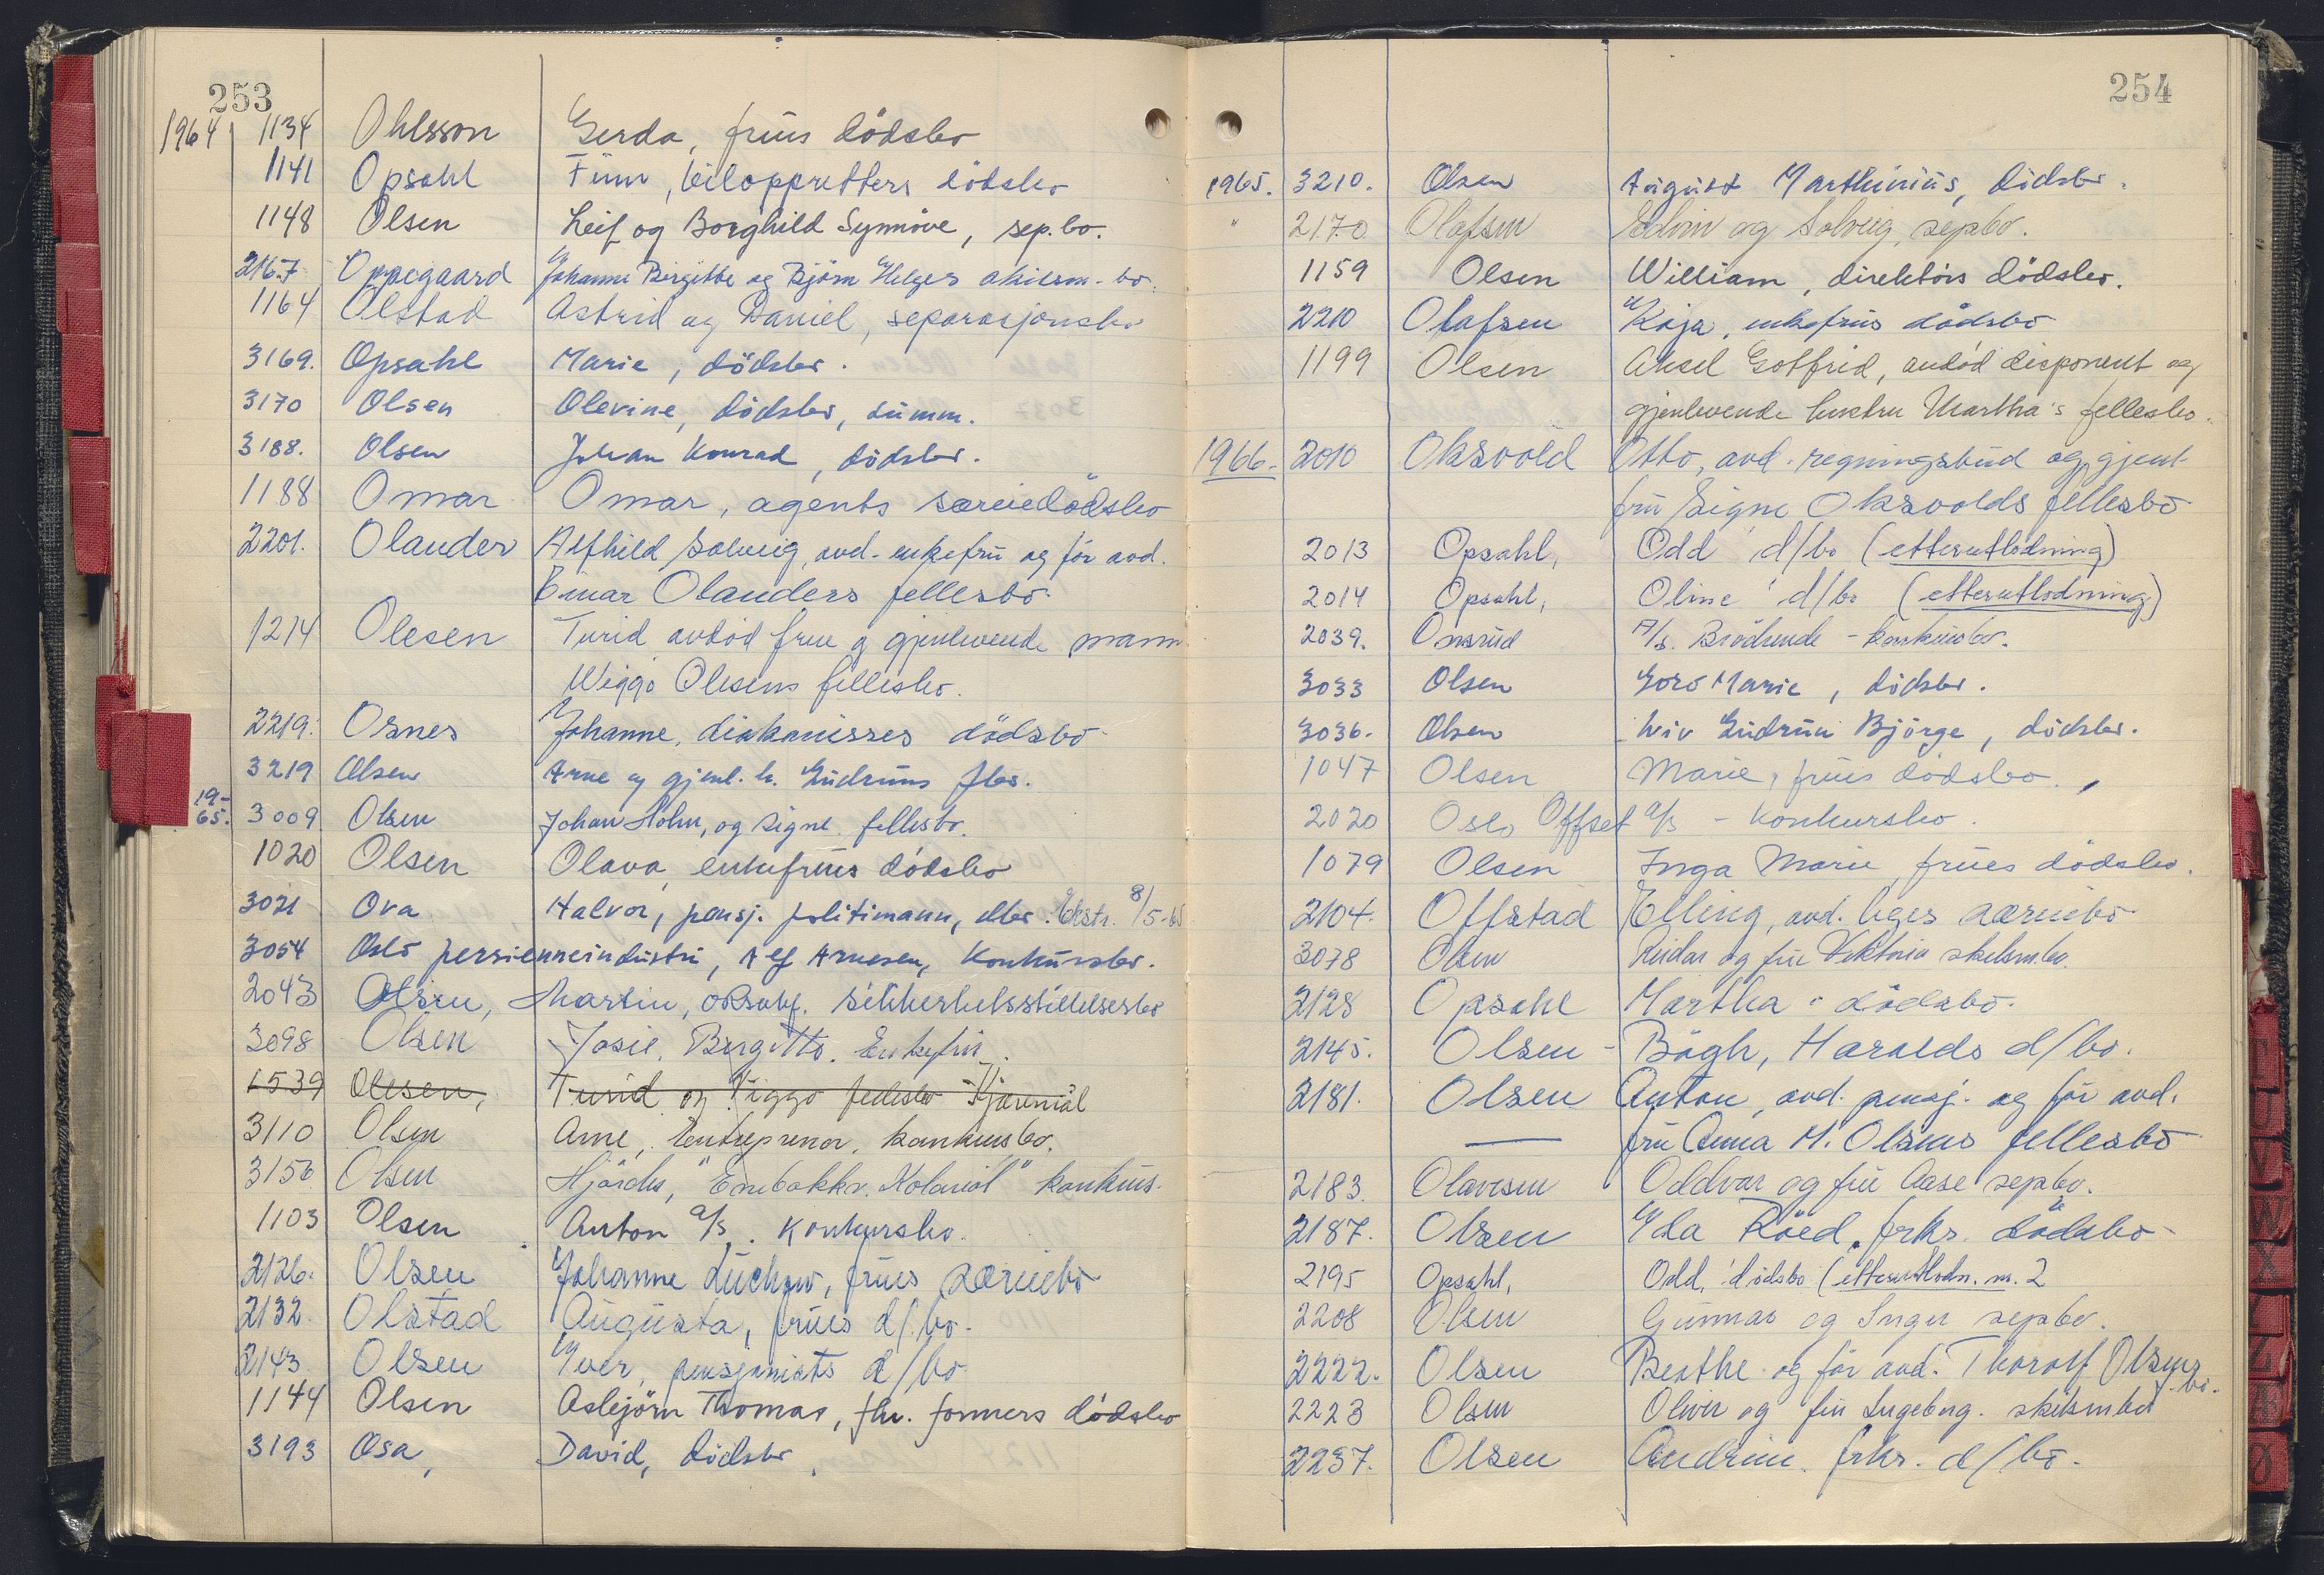 253
1964 1134 Ohlsson Gerda, frues dödsbo
1141 Opsahl Finn, biloppretters dödsbo
1148 Olsen Leif og Borghild Synnöve, sep.bo.
2167 Oppegaard Johanne Birgitte og Björn Helges skilsm.-bo.
1164 Olstad Astrid og Daniel, separasjonsbo
3169. Opsahl Marie, dödsbo.
3170 Olsen Olevine, dödsbo, summ.
3188. Olsen Johan Konrad, dödsbo.
1188 Omar Omar, agents særeiedödsbo
2201. Olander Alfhild Solveig, avd. enkefru og för avd.
Einar Olanders fellesbo.
1214 Olesen Turid avdöd frue og gjenlevende mann
Wiggo Olesens fellesbo.
2219. Osnes Johanne, diakonisses dödsbo
3219 Olsen Arne og gjenl. h. Gudruns fbo.
19-65. 3009 Olsen Johan Holm, og Signe fellesbo.
1020 Olsen Olava, enkefrues dödsbo
3021 Ova Halvor, pensj. politimann, dbo. Ekstr. 8/5-65
3054 Oslo persienneindustri, Alf Arnesen, Konkursbo.
2043 Olsen, Martin, sikkerhetsstillelsesbo
3098 Olsen Josie, Birgitte. Enkefru.
1539 Olesen, Turid og Viggo fellesbo Skjønnmål
3110 Olsen Arne, Entreprenør, konkursbo.
3156 Olsen Hjördis, "Enebakkv. Kolonial" konkurs.
1103 Olsen Anton A/S. Konkursbo.
2126. Olsen Johanne Lüchow, frues særeiebo
2132. Olstad Augusta, frues d/bo.
2143. Olsen Iver, pensjonists d/bo
1144 Olsen Asbjörn Thomas, fhv. formers dödsbo
3193 Osa, David, dödsbo.
254
1965. 3210. Olsen August Marthinius, dödsbo.
" 2170 Olafsen Edvin og Solveig, sepbo.
1159 Olsen William, direktörs dödsbo.
2210 Olafsen Kaja, enkefrues dödsbo
1199 Olsen Aksel Gotfred, avdöd disponent og
gjenlevende hustru Martha's fellesbo.
1966. 2010 Oksvold Otto, avd. regningsbud og gjenl.
fru Signe Oksvolds fellesbo
2013 Opsahl, Odd d/bo (etterutlodning)
2014 Opsahl, Oline d/bo (etterutlodning)
2039. Onsrud A/s. Brödrende - konkursbo.
3033 Olsen Goro Marie, dödsbo.
3036. Olsen Liv Gudrun Björge, dödsbo.
1047 Olsen Marie, frues dödsbo.
2020 Oslo Offset A/S - Konkursbo.
1079 Olsen Inga Marie, frues dödsbo.
2104. Offstad Elling, avd. leges særeiebo
3078 Olsen Reidar og fru Viktoria skilsm.bo.
2128 Opsahl Martha's dödsbo.
2145. Olsen - Bögh, Haralds d/bo.
2181. Olsen Anton, avd. pensj. og för avd.
— fru Anna M. Olsens fellesbo
2183. Olavesen Oddvar og fru Aase sepbo.
2187. Olsen Ida Röed, frks. dödsbo
2195 Opsahl, Odd, dödsbo (etterutlodn. nr. 2
2208 Olsen Gunnar og Inger sepbo.
2222. Olsen Berthe og för avd. Thorolf Olsens bo.
2223 Olsen Oliver og fru Ingeborg. skilsmbo
2237. Olsen Andrine, frks. d/bo.
U
V
W
X
Z
Æ
Ø